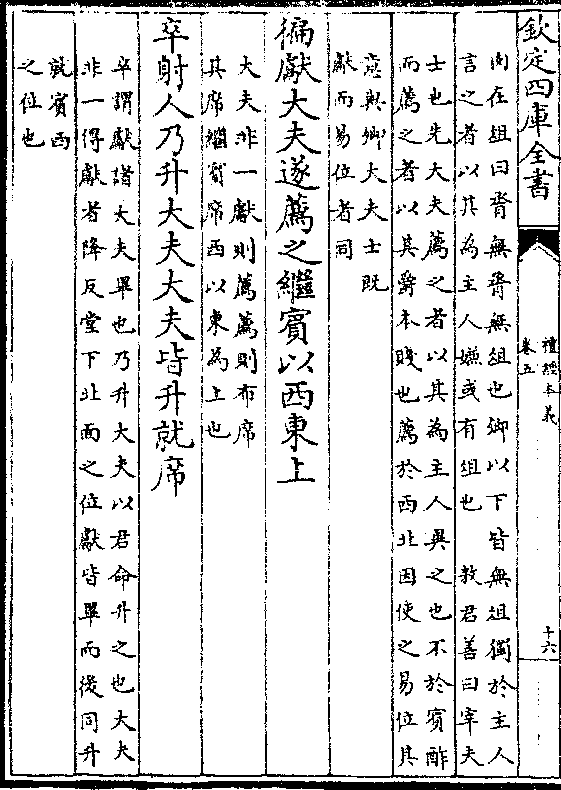 欽定四庫全書
禮經本義
卷五
十六
肉在俎曰脀無脀無俎也卿以下皆無俎獨於主人
言之者以其為主人嫌或有俎也 敖君善曰宰夫
士也先大夫薦之者以其為主人異之也不於賓酢
而薦之者以其爵本賤也薦於西北因使之易位其
意與卿大夫士既
獻而易位者同
徧獻大夫遂薦之繼賓以西東上
大夫非一獻則薦薦則布席
其席繼賓席西以東為上也
卒射人乃升大夫大夫皆升就席
卒謂獻諸大夫畢也乃升大夫以君命升之也大夫
非一得獻者降反堂下北面之位獻皆畢而後同升
就賓西
之位也